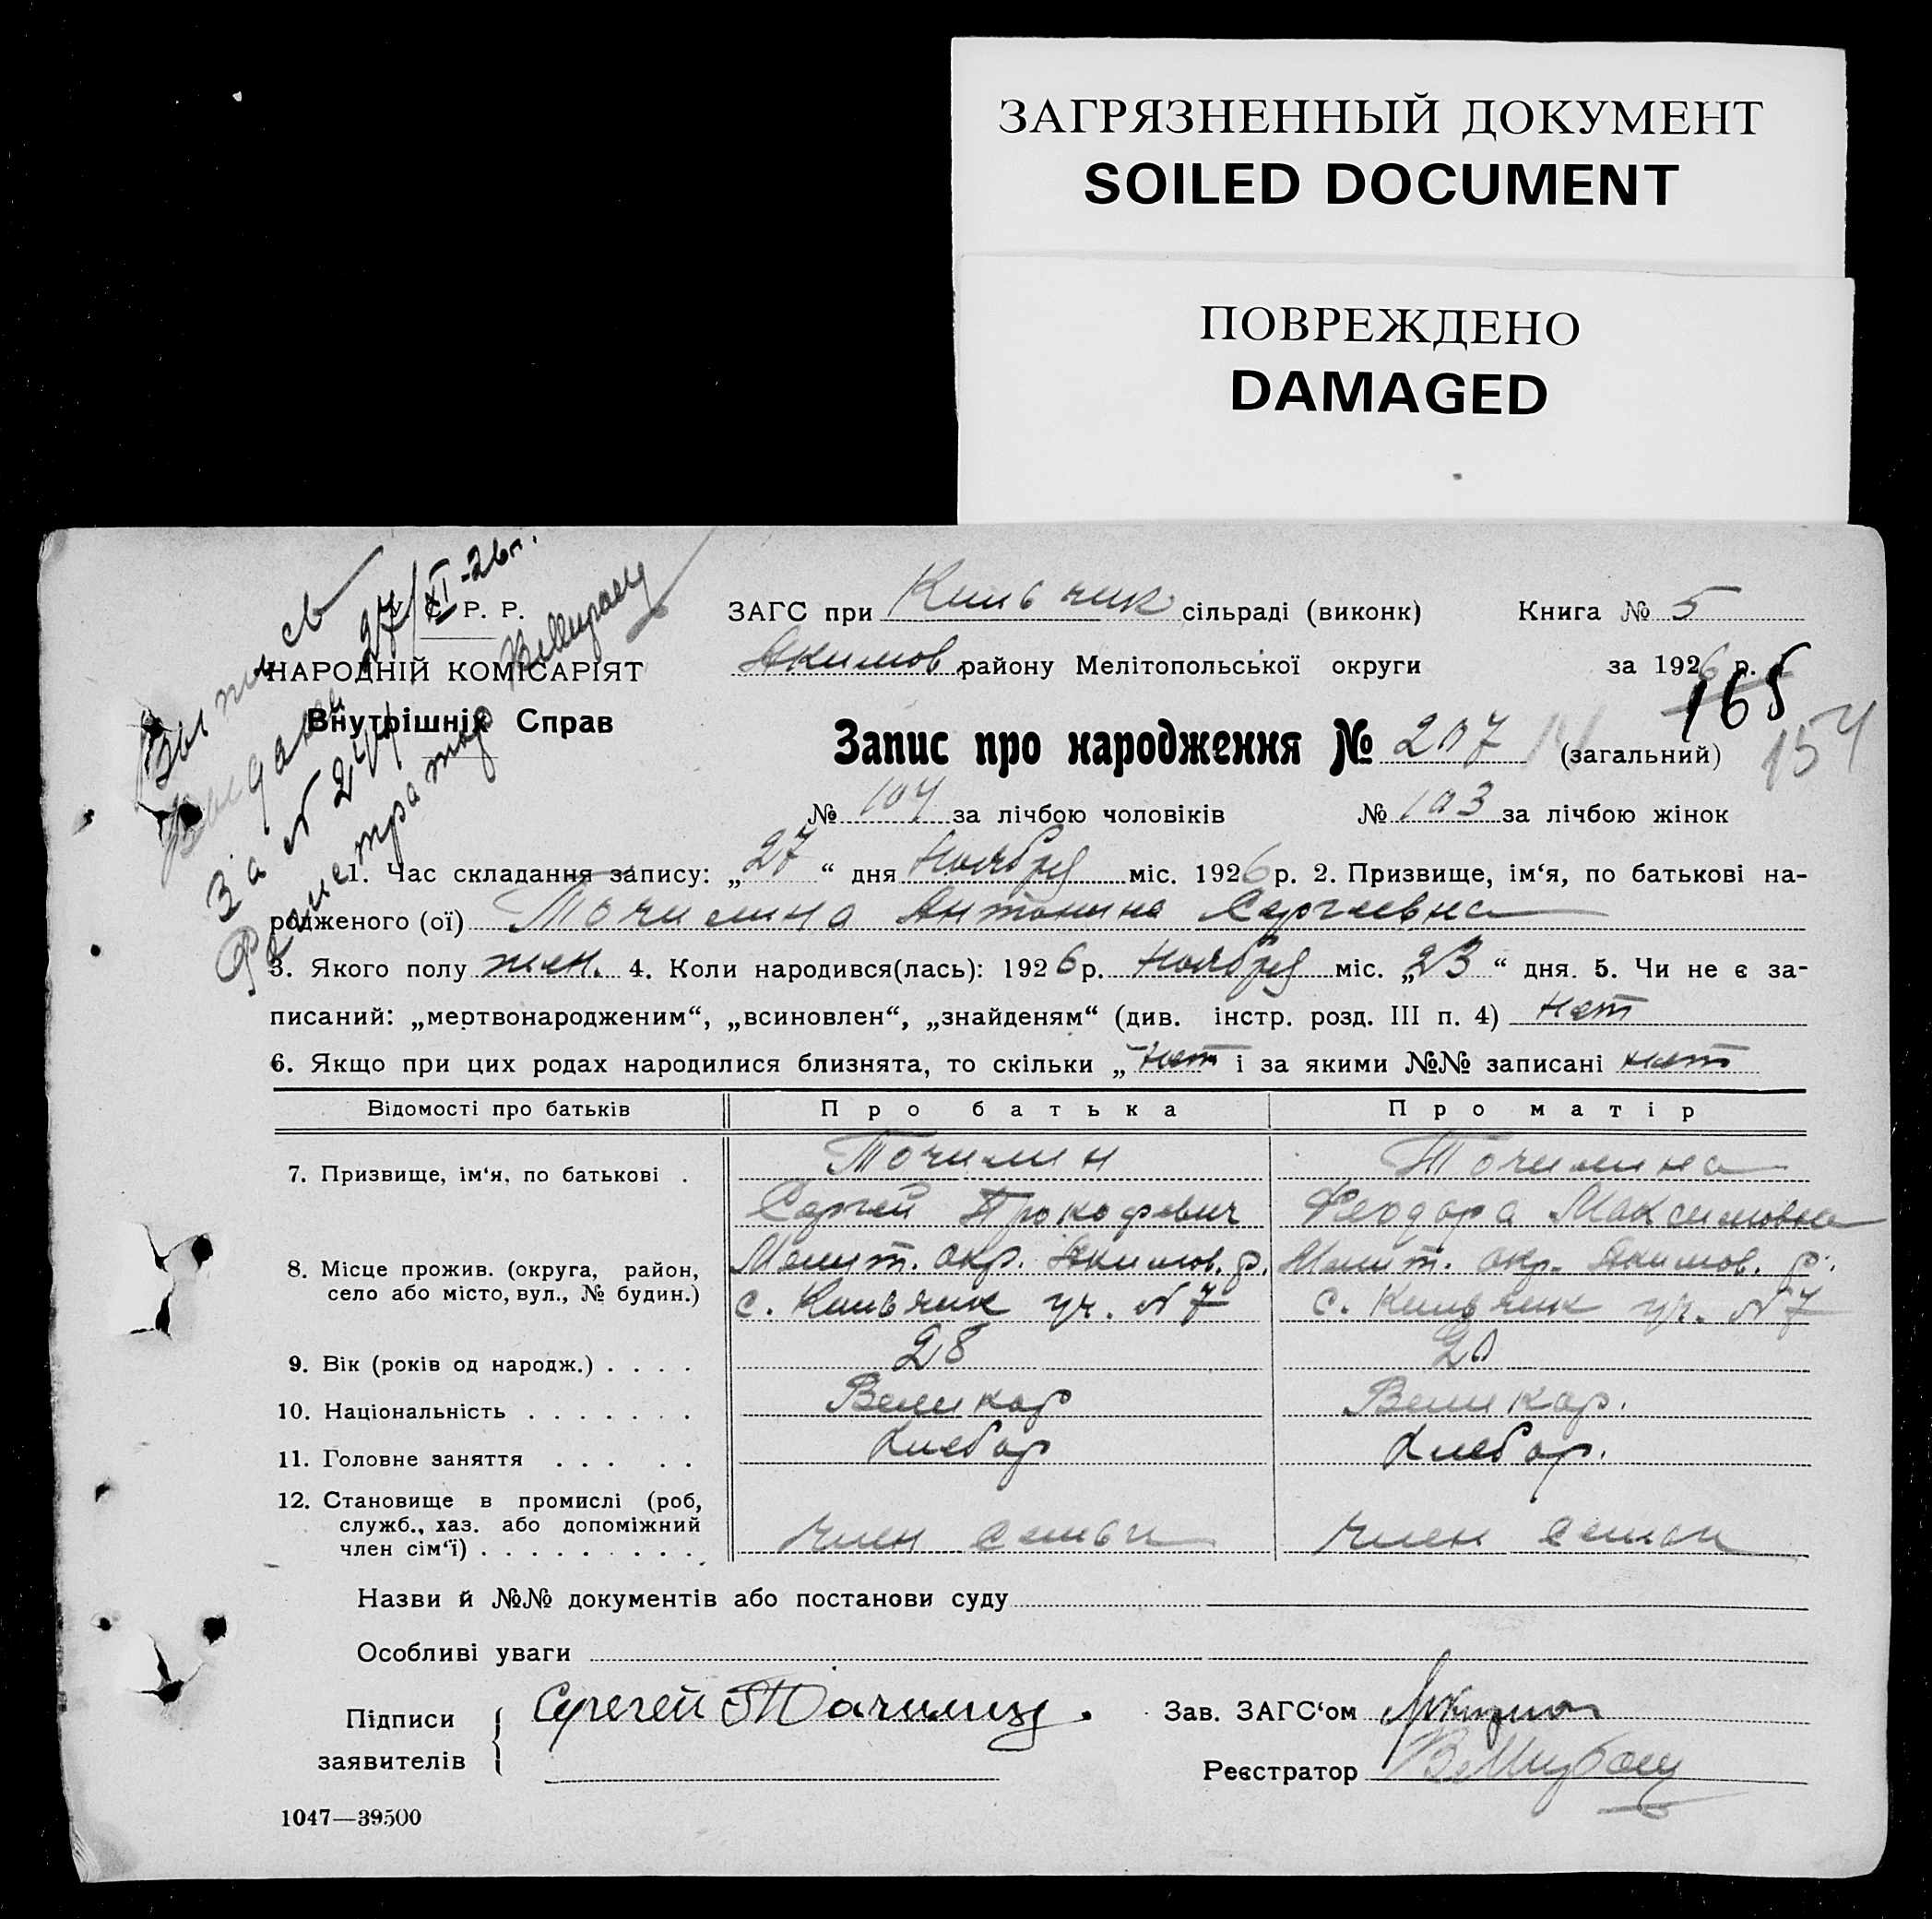 ЗАГРЯЗНЕННЫЙ ДОКУМЕНТ
SOILED DOCUMENT
ПОВРЕЖДЕНО
DAMAGED
Выпись
выдана 27/XI-26г.
За №
Регистратор
Р. Р.
НАРОДНІЙ КОМІСАРІЯТ
Внутрішніх Справ
ЗАГС при сільраді (виконк) Книга № 5
Акимов району Мелітопольської округи за 1926 р.
165
154
Запис про народження № 207 (загальний)
№ 104 за лічбою чоловіків № 103 за лічбою жінок
1. Час складання запису: „27“ дня Ноября міс. 1926 р. 2. Призвище, ім‘я, по батькові на-
родженого (ої) Точилина Антонина Сергеевна
3. Якого полу жен. 4. Коли народився(лась): 1926 р. Ноября міс. „23“ дня. 5. Чи не є за-
писаний: „мертвонародженим“, „всиновлен“, „знайденям“ (див. інстр. розд. III п. 4) нет
6. Якщо при цих родах народилися близнята, то скільки „нет і за якими №№ записані нет
Відомості про батьків Про батька Про матір
7. Призвище, ім‘я, по батькові . Точилин Точилина
Сергей Прокофевич Феодора Максимовна
8. Місце прожив. (округа, район, Мелит. окр. Акимов. р. Мелит. окр. Акимов. р.
село або місто, вул., № будин.) с. уч. № 7 с. уч. № 7
9. Вік (років од народж.) . . . . 28 20
10. Національність . . . . . . . Великор Великор.
11. Головне заняття . . . . . Хлебор Хлебор.
12. Становище в промислі (роб,
служб., хаз. або допоміжний
член сім‘ї) . . . . . . . . . член семьи член семьи
Назви й №№ документів або постанови суду
Особливі уваги
Підписи Сергей Точилин. Зав. ЗАГС‘ом
заявителів Реєстратор
1047—39500